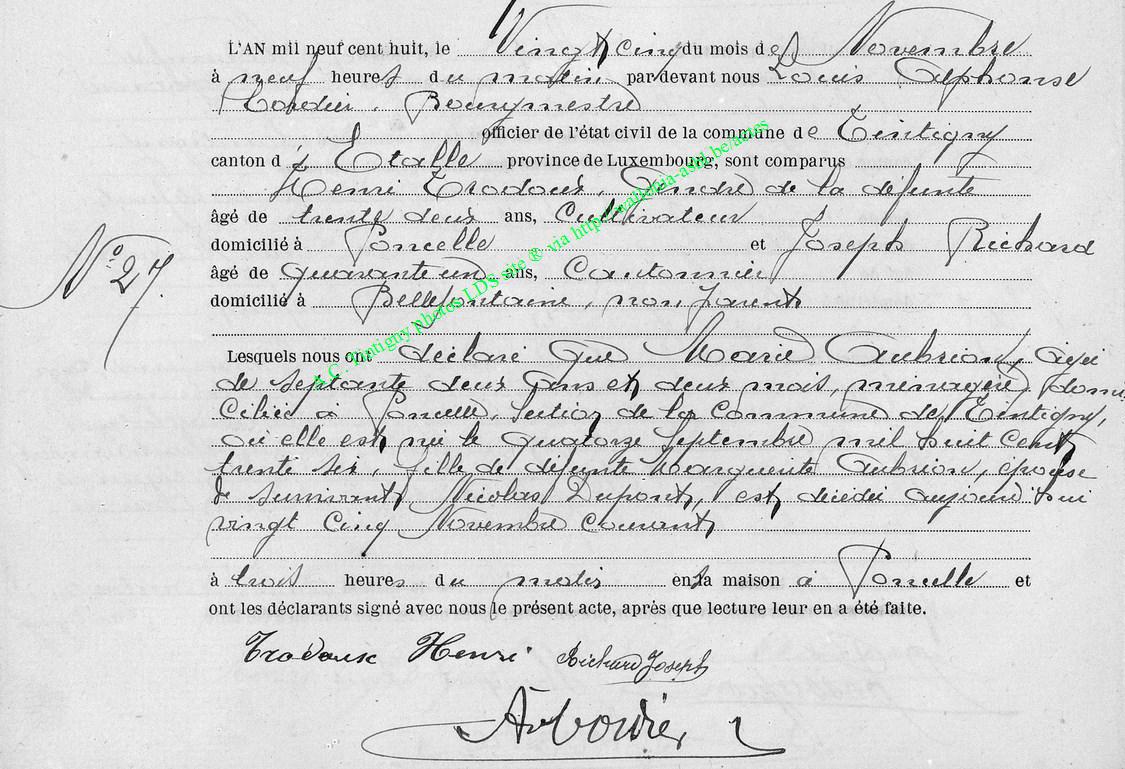 L'AN mil neuf cent huit, le Vingt cinq du mois de Novembre
à neuf heures du matin par devant nous Louis Alphonse
Bourgmestre
officier de l'état civil de la commune de Tintigny
canton d'Etalle province de Luxembourg, sont comparus
Henri Trodoux, Gendre de la défunte
âgé de trente deux ans, Cultivateur
domicilié à Poncelle et Joseph Richard
N° 27.
âgé de quarante un ans, Cantonnier
domicilié à Bellefontaine, non parent
Lesquels nous ont déclaré que Marie Aubrion, agée
de septante deux ans et deux mois, ménagère, domi
ciliée à Poncelle, section de la Commune de Tintigny,
où elle est née le quatorze Septembre mil huit cent
trente six, fille de défunte Marguerite Aubrion, épouse
de survivant Nicolas Dupont, est décédée aujourd'hui
vingt cinq Novembre courant,
à trois heures du matin en sa maison à Poncelle et
ont les déclarants signé avec nous le présent acte, après que lecture leur en a été faite.
Trodoux Henri Richard Joseph
A.C. Tintigny Photos LDS site ® via http://wallonia-asbl.be/actes